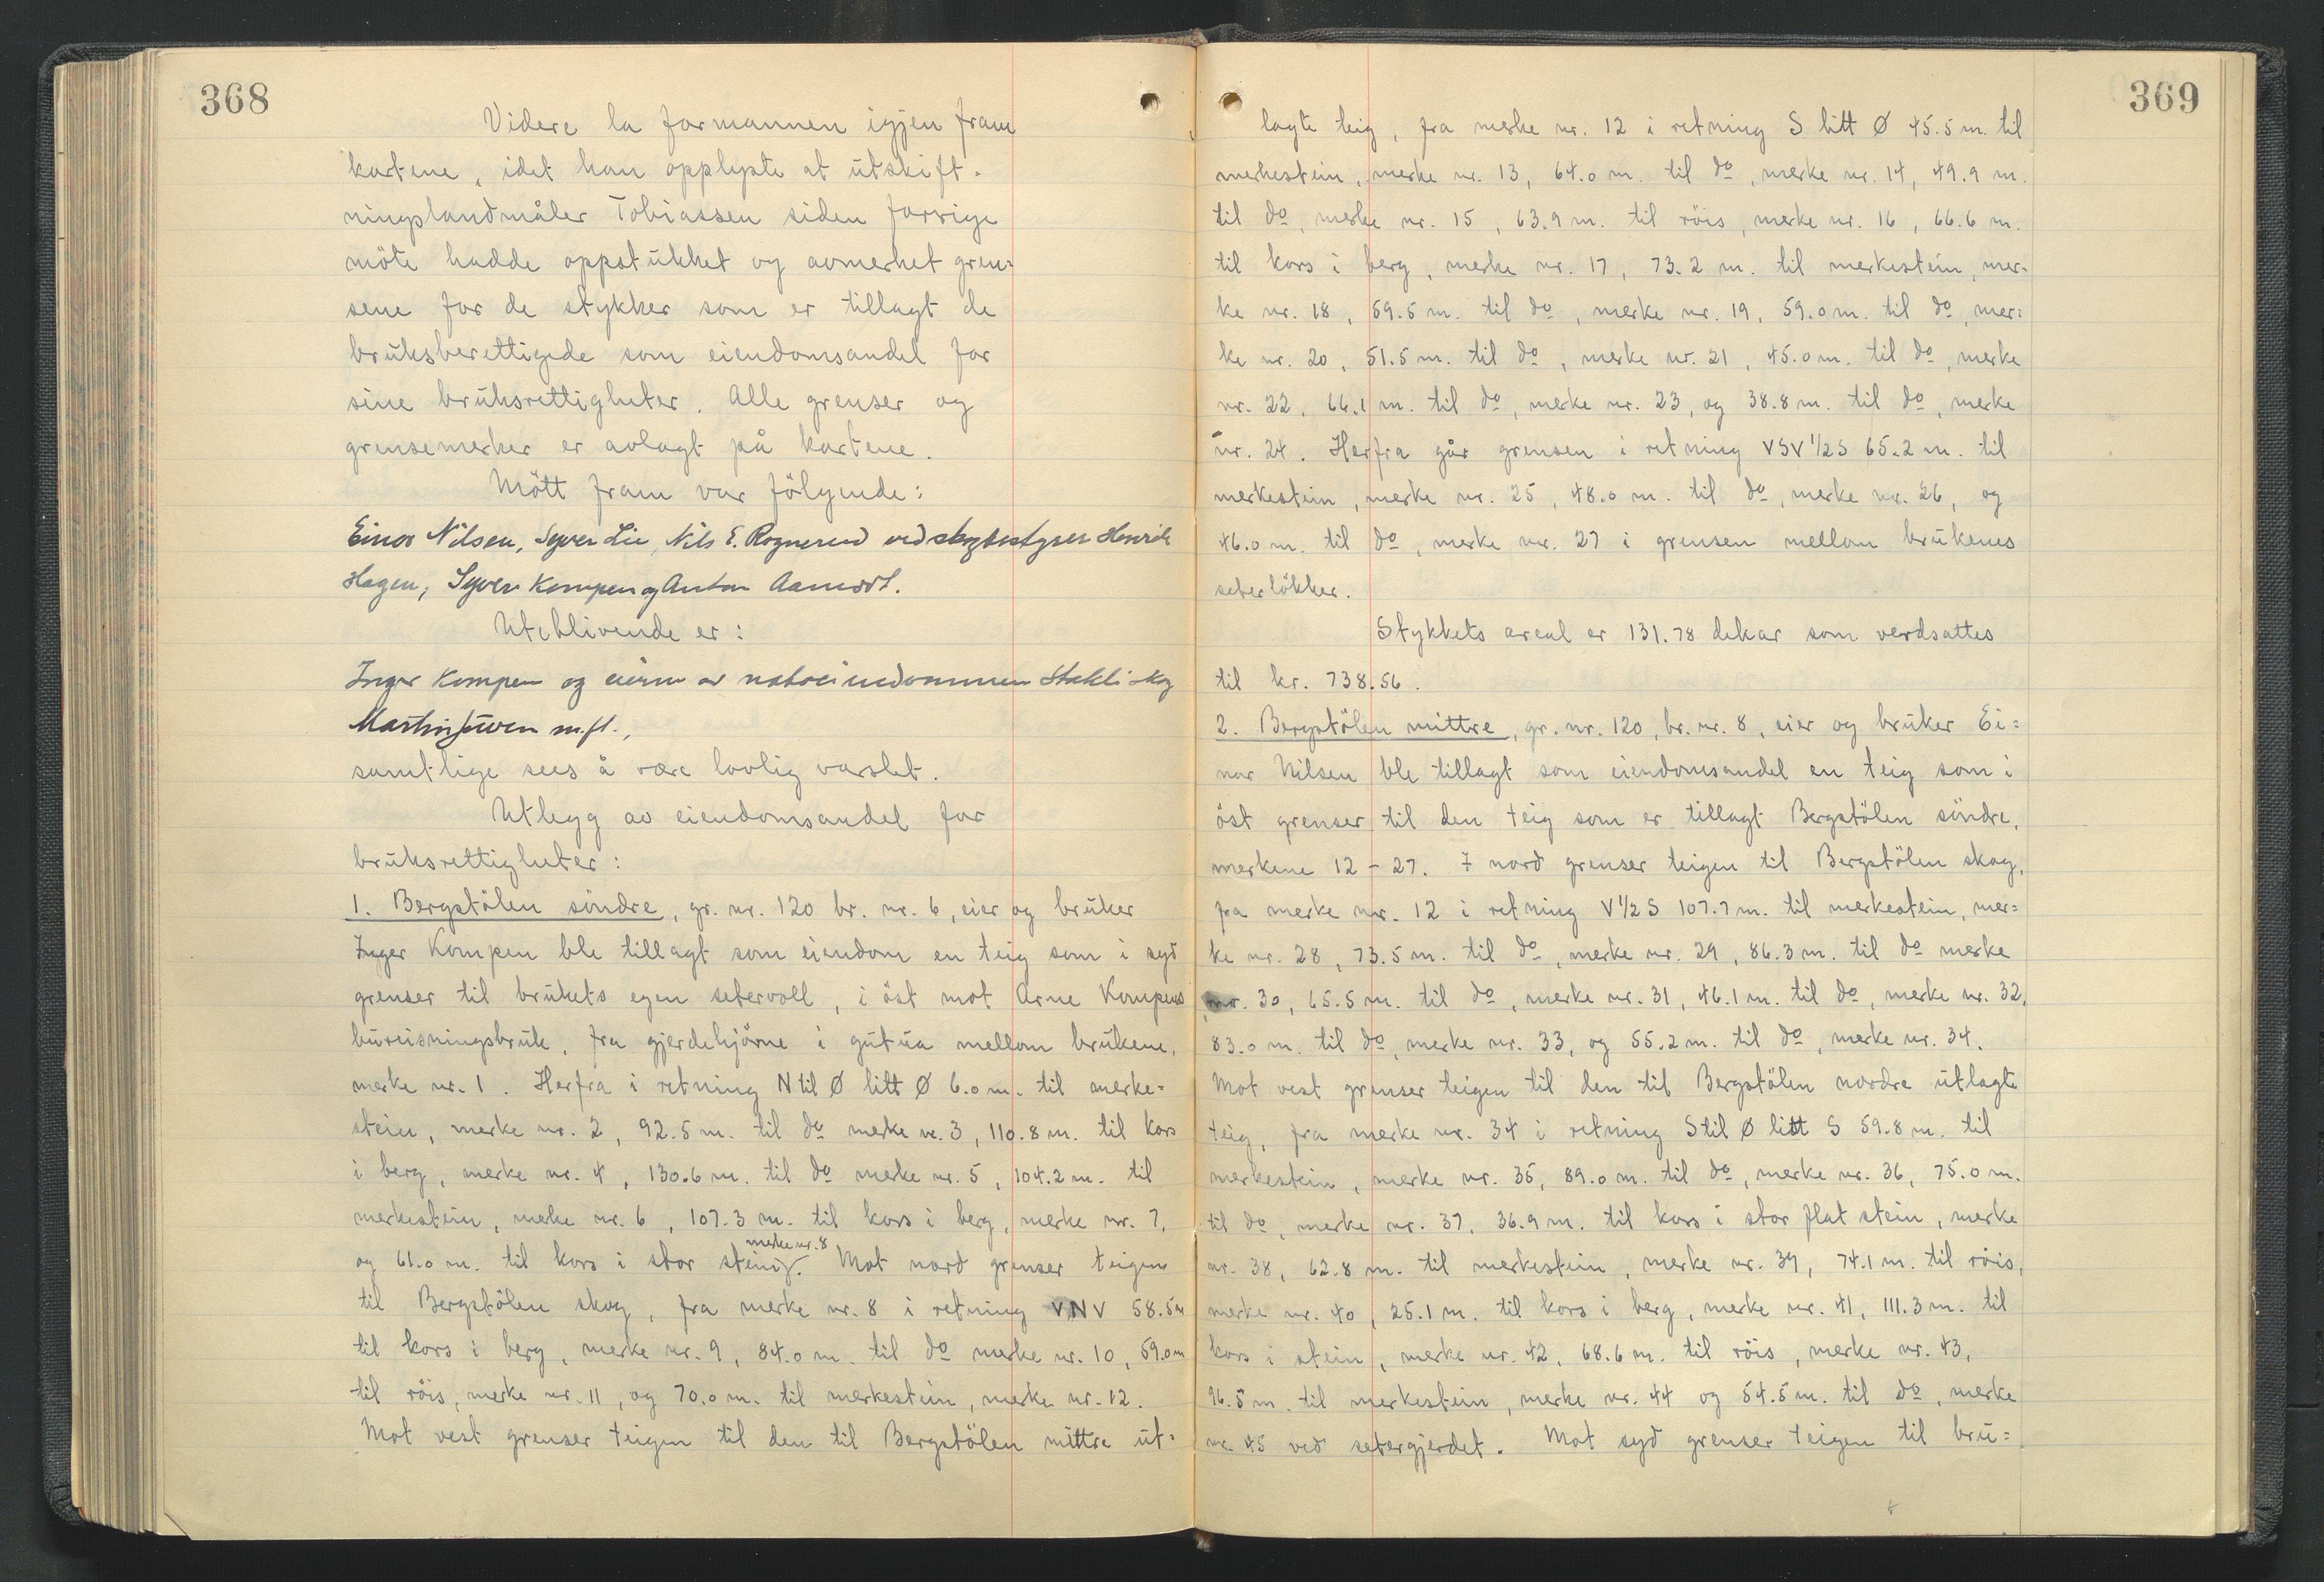 368
Videre la formannen igjen fram
kartene, idet han opplyste at utskift-
ningslandmåler Tobiassen siden forrige
möte hadde oppstukket og avmerket gren=
sene for de stykker som er tillagt de
bruksberettigede som eiendomsandel for
sine bruksrettigheter. Alle grenser og
grensemerker er avlagt på kartene.
Mött fram var fölgende:
Einar Nilsen, Syver Lie, Nils E. Rognerud ved skogbestyrer Henrik
Hagen, Syver Kompen og Anton Aamodt.
Uteblivende er:
Inger Kompen og eierne av naboeiendommen Stakli skog
Martin m.fl.,
samtlige sees å være lovlig varslet.
Utlegg av eiendomsandel for
bruksrettigheter:
1. Bergstölen söndre, gr. nr. 120 br. nr. 6, eier og bruker
Inger Kompen ble tillagt som eiendom en teig som i syd
grenser til brukets egen setervoll, i öst mot Arne Kompens
bureisningsbruk, fra gjerdehjörne i gutua mellom brukene,
merke nr. 1. Herfra i retning N til Ø litt Ø 6.0 m. til merke=
stein, merke nr. 2, 92.5 m. til do merke nr. 3, 110.8 m. til kors
i berg, merke nr. 4, 130.6 m. til do merke nr. 5, 104.2 m. til
merkestein, merke nr. 6, 107.3 m. til kors i berg, merke nr. 7,
og 61.0 m. til kors i stor stein, merke nr. 8. Mot nord grenser teigen
til Bergstölen skog, fra merke nr. 8 i retning VNV 58.5 m
til kors i berg, merke nr. 9, 84.0 m. til do merke nr. 10, 59.0 m
til röis, merke nr. 11, og 70.0 m. til merkestein, merke nr. 12.
Mot vest grenser teigen til den til Bergstölen mittre ut=
369
lagte teig, fra merke nr. 12 i retning S litt Ø 45.5 m. til
merkestein, merke nr. 13, 64.0 m. til do, merke nr. 14, 49.9 m.
til do, merke nr. 15, 63.9 m. til röis, merke nr. 16, 66.6 m.
til kors i berg, merke nr. 17, 73.2 m. til merkestein, mer-
ke nr. 18, 59.5 m. til do, merke nr. 19, 59.0 m. til do, mer=
ke nr. 20, 51.5 m. til do, merke nr. 21, 45.0 m. til do, merke
nr. 22, 66.1 m. til do, merke nr. 23, og 38.8 m. til do, merke
nr. 24. Herfra går grensen i retning VSV 1/2 S 65.2 m. til
merkestein, merke nr. 25, 48.0 m. til do, merke nr. 26, og
46.0 m. til do, merke nr. 27 i grensen mellom brukenes
seterlökker.
Stykkets areal er 131.78 dekar som verdsattes
til kr. 738.56.
2. Bergstölen mittre, gr. nr. 120, br. nr. 8, eier og bruker Ei=
nar Nilsen ble tillagt som eiendomsandel en teig som i
öst grenser til den teig som er tillagt Bergstölen söndre,
merkene 12 - 27. I nord grenser teigen til Bergstölen skog,
fra merke nr. 12 i retning V 1/2 S 107.7 m. til merkestein, mer=
ke nr. 28, 73.5 m. til do, merke nr. 29, 86.3 m. til do merke
nr. 30, 65.5 m. til do, merke nr. 31, 46.1 m. til do, merke nr. 32,
83.0 m. til do, merke nr. 33, og 55.2 m. til do, merke nr. 34.
Mot vest grenser teigen til den til Bergstölen nordre utlagte
teig, fra merke nr. 34 i retning S til Ø litt S 59.8 m. til
merkestein, merke nr. 35, 89.0 m. til do, merke nr. 36, 75.0 m.
til do, merke nr. 37, 36.9 m. til kors i stor flat stein, merke
nr. 38, 62.8 m. til merkestein, merke nr. 39, 74.1 m. til röis,
merke nr. 40, 25.1 m. til kors i berg, merke nr. 41, 111.3 m. til
kors i stein, merke nr. 42, 68.6 m. til röis, merke nr. 43,
96.5 m. til merkestein, merke nr. 44 og 54.5 m. til do, merke
nr. 45 ved setergjerdet. Mot syd grenser teigen til bru=